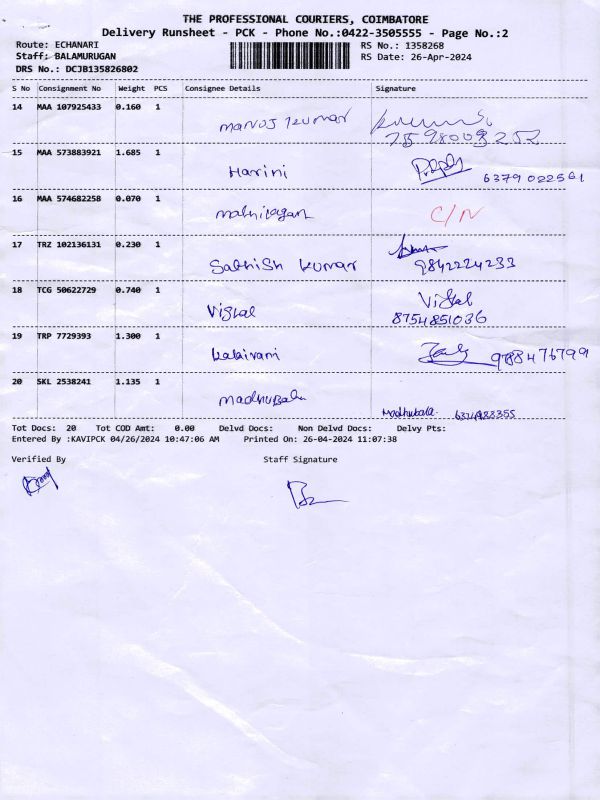 THE PROFESSIONAL COURIERS, COIMBATORE
Delivery Runsheet - PCK - Phone No.:0422-3505555 - Page No.:2
Route: ECHANARI RS No.: 1358268
Staff: BALAMURUGAN RS Date: 26-Apr-2024
DRS No.: DCJB135826802
S No Consignment No Weight PCS Consignee Details Signature
14 MAA 107925433 0.160 1
Manoj Kumar
15 MAA 573883921 1.685 1
Harini 6379 022561
16 MAA 574682258 0.070 1
C/N
17 TRZ 102136131 0.230 1
Sathish Kumar 9842224233
18 TCG 50622729 0.740 1
Vishal Vishal
8754851036
19 TRP 7729393 1.300 1
Kalaivani 9788476799
20 SKL 2538241 1.135 1
Madhubala
Madhubala
Tot Docs: 20 Tot COD Amt: 0.00 Delvd Docs: Non Delvd Docs: Delvy Pts:
Entered By :KAVIPCK 04/26/2024 10:47:06 AM Printed On: 26-04-2024 11:07:38
Verified By Staff Signature